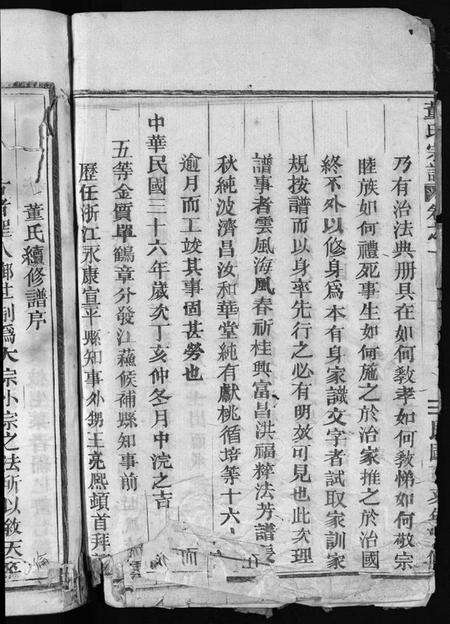 董氏宗譜
乃有治法典册具在如何教孝如何教悌如何敬宗
睦族如何禮死事生如何施之於治家推之於治國
終不外以修身爲本有身家識文字者試取家訓家
規按譜而以身率先行之必有明效可見也此次理
譜事者雲風海風春祈桂興富昌洪福粹法芳譜長
秋純波濟昌汝和華堂純有獻桃循培等十六
逾月而工竣其事固甚勞也
中華民國三十六年歲次丁亥仲冬月中浣之吉
五等金質單鶴章分發江蘇候補縣知事前
歷任浙江永康宣平縣知事外甥王亮熙頓首拜
董氏續修譜序
爲大宗小宗之法所以敬天